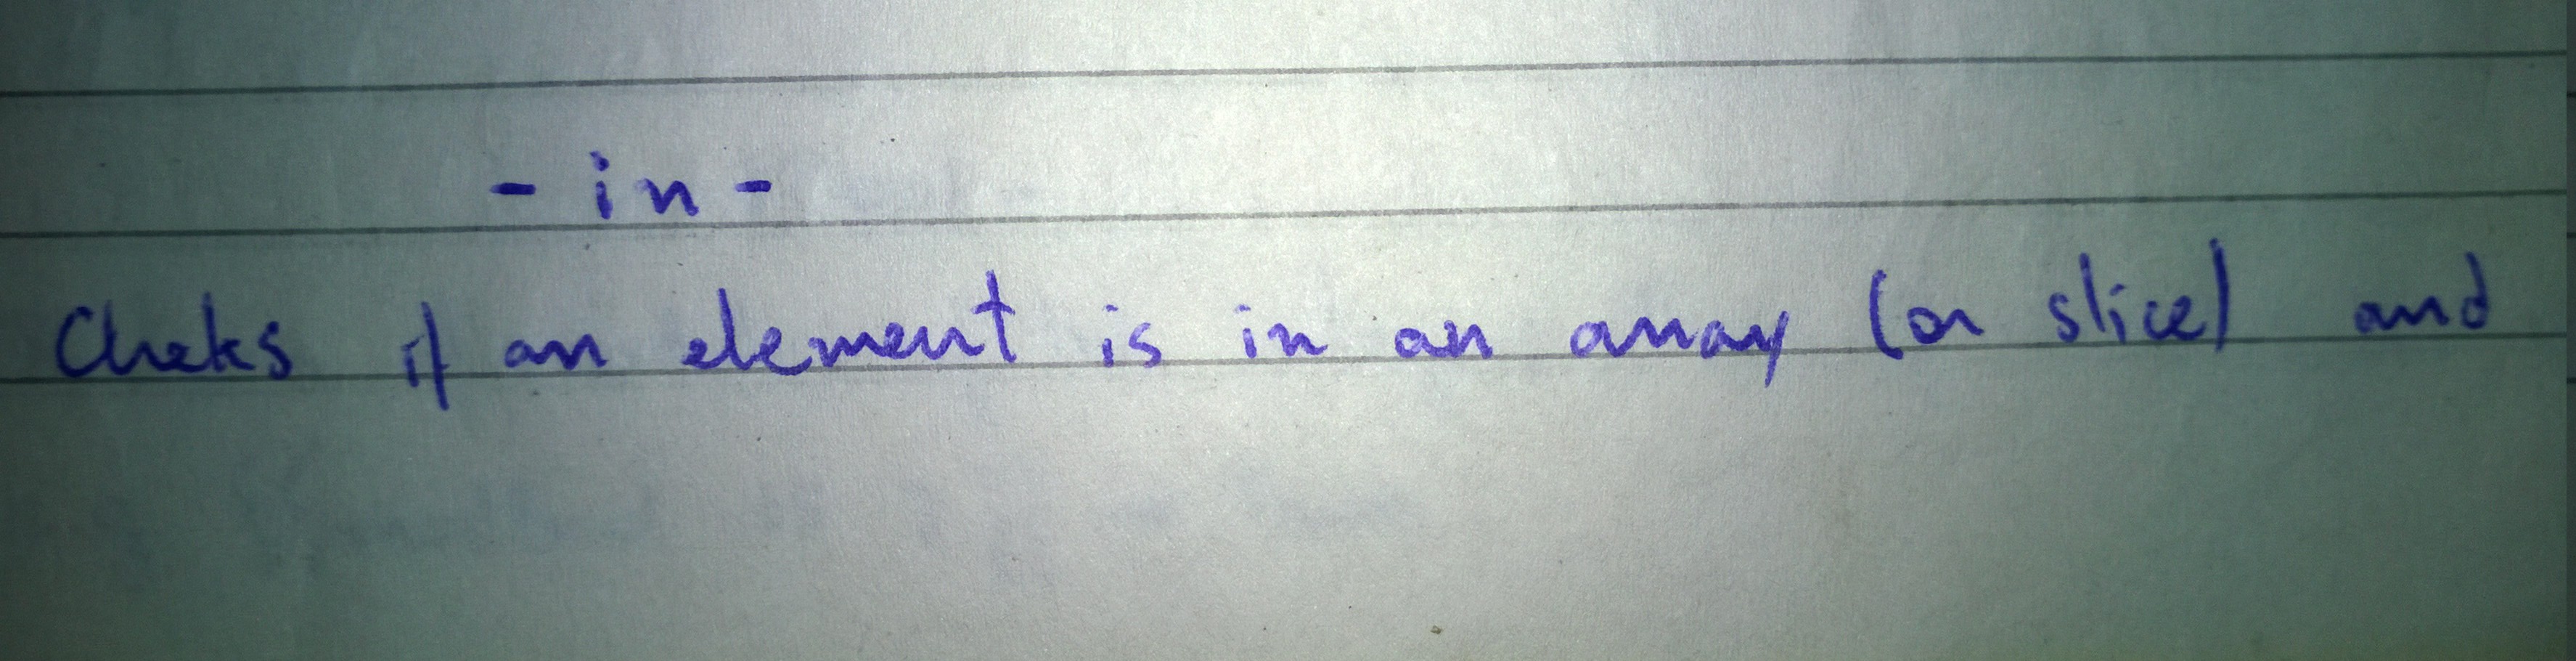 - in -
Checks if an element is in an array (or slice) and